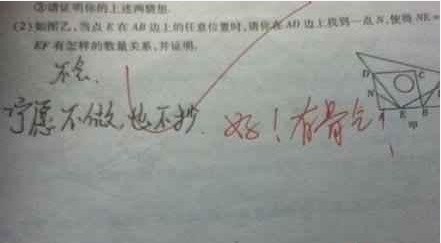 ③请证明你的上述两猜想.
(2)如图乙,当点 E 在 AB 边上的任意位置时,请你在 AD 边上找到一点 N,使得 NE=
EF 有怎样的数量关系,并证明.
不会.
宁愿不做,也不抄. 好!有骨气!
D C
N
A E B